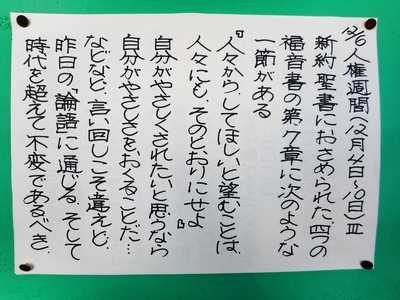 12/6 人権週間(12月4日~10日)Ⅲ
新約聖書におさめられた、四つの
福音書の第7章に次のような
一節がある
『人々から、してほしいと望むことは、
人々にも、そのとおりにせよ』
自分がやさしくされたいと思うなら
自分がやさしさをおくることだ…
などなど、言い回しこそ違えど、
昨日の「論語」に通じる。そして
時代を超えて不変であるべき。